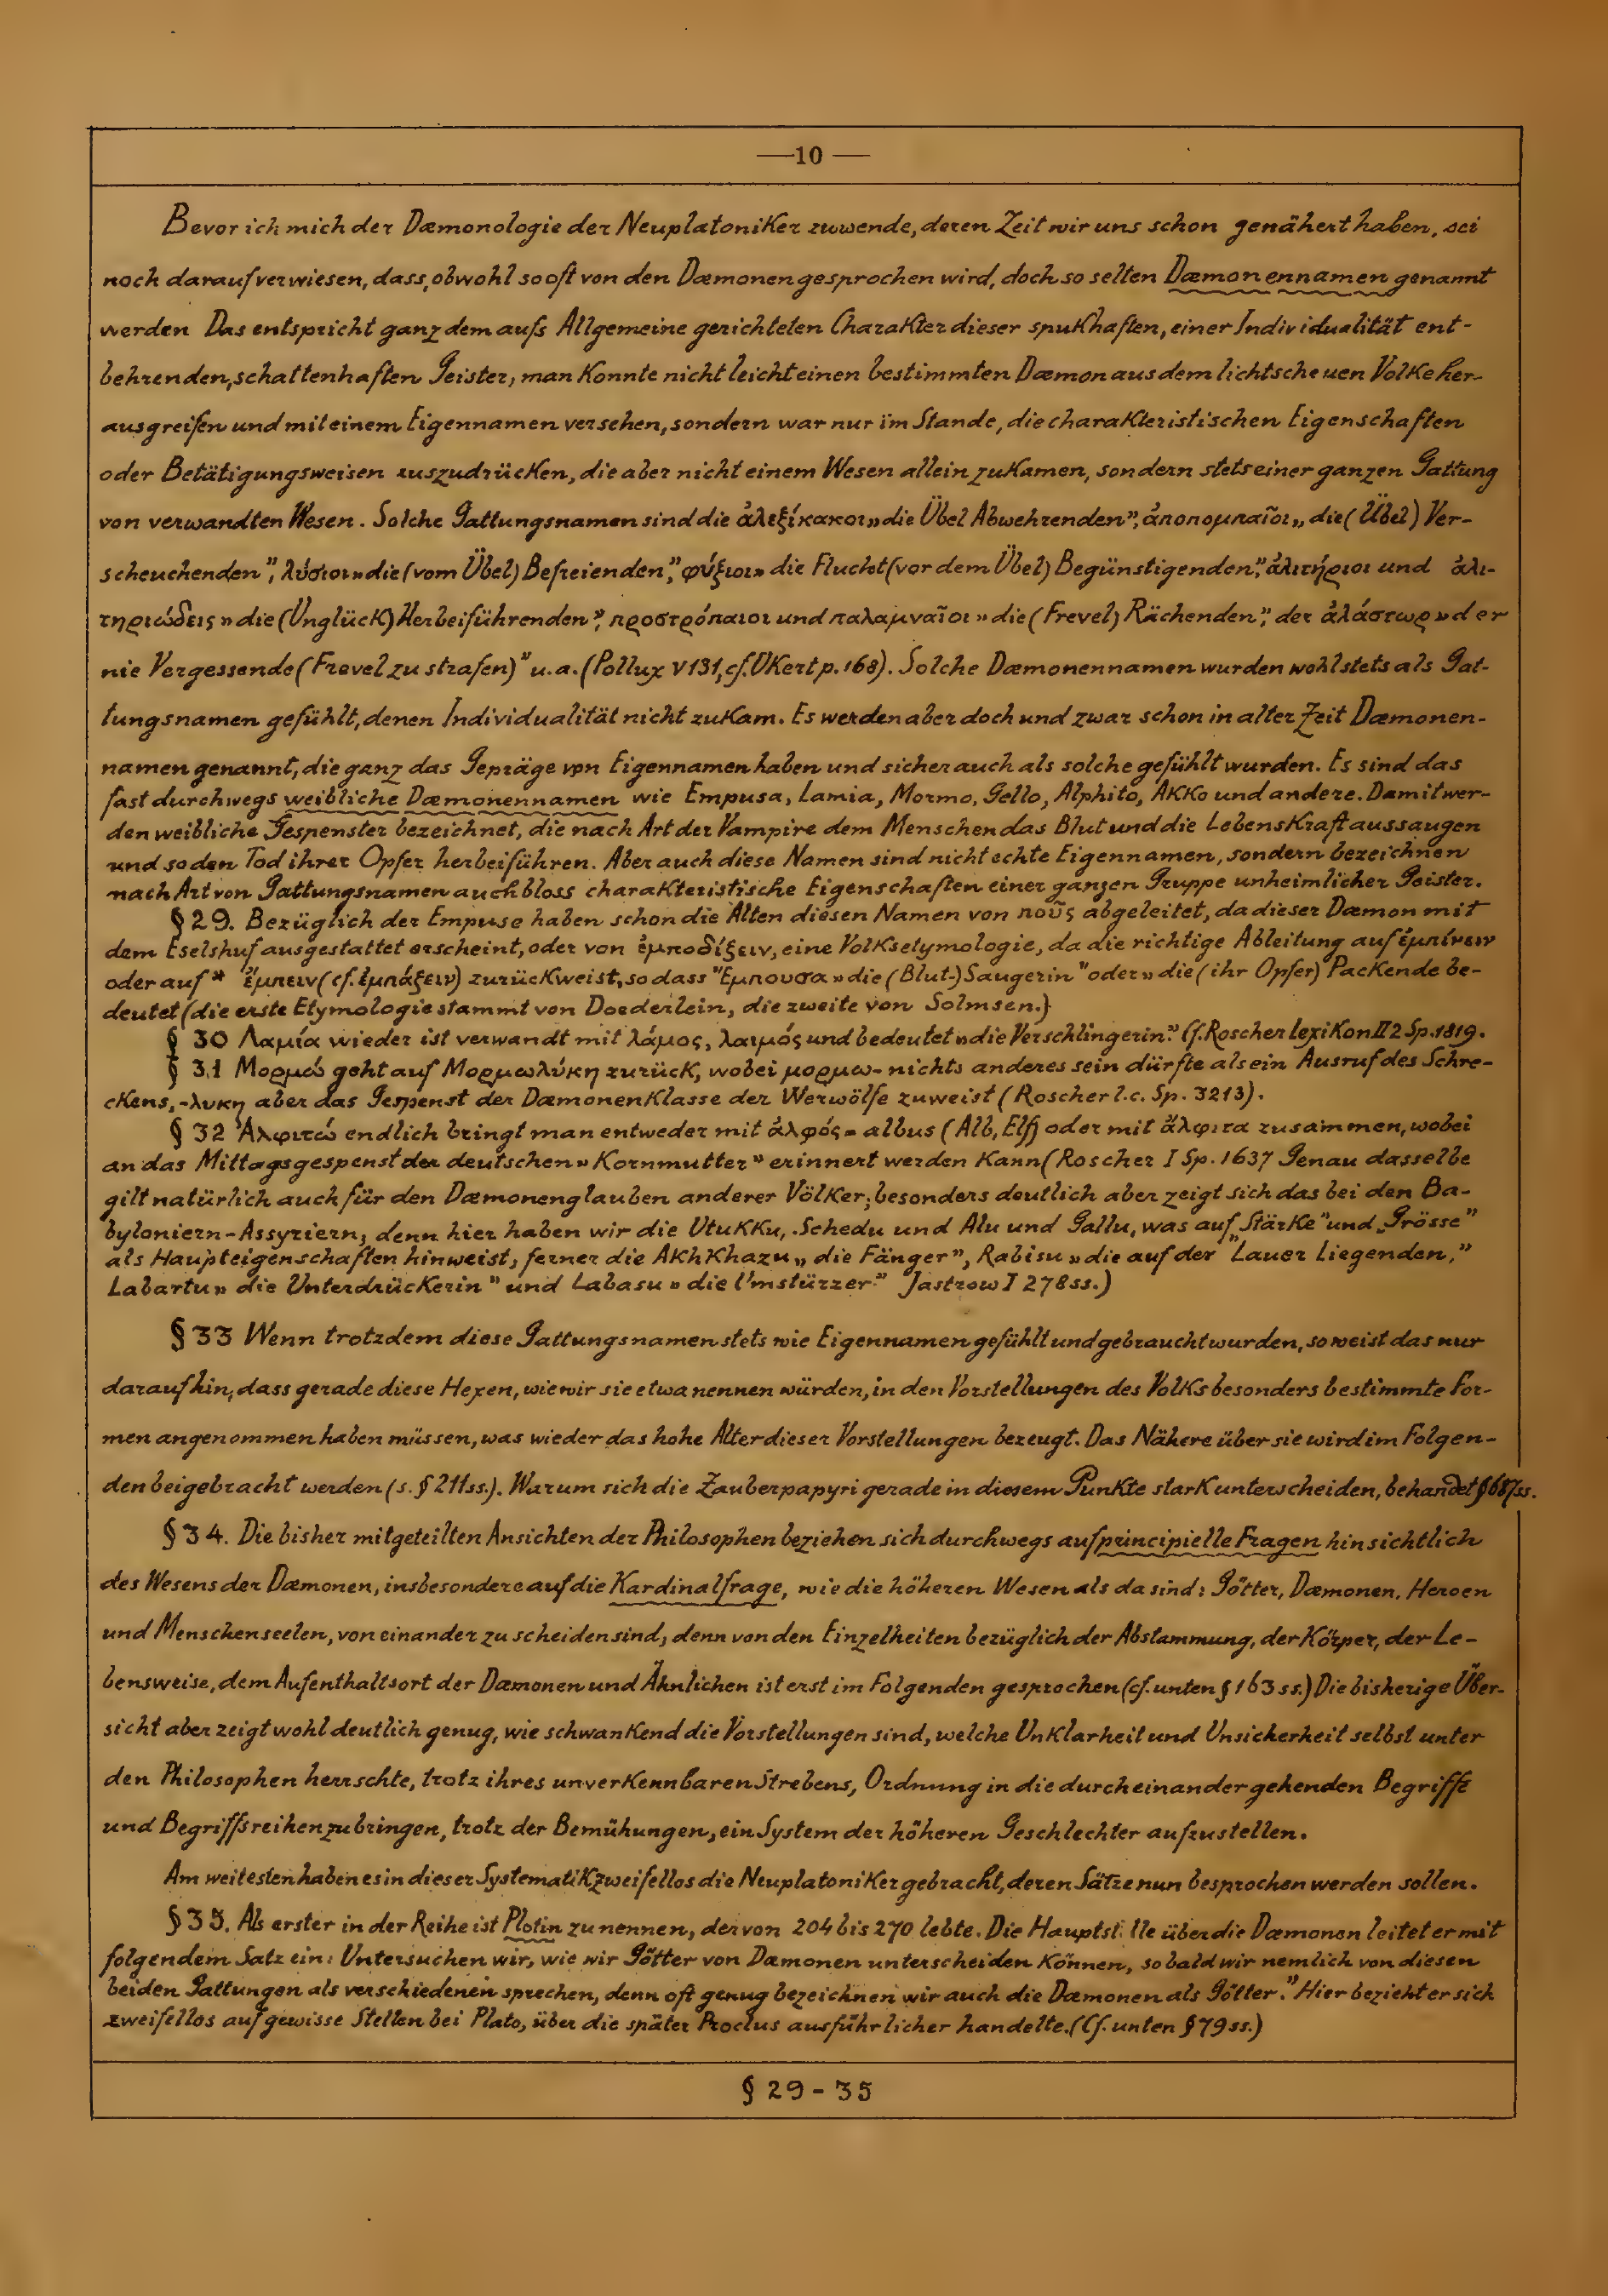 —10—
Bevor ich mich der Dæmonologie der Neuplatoniker zuwende, deren Zeit wir uns schon genähert haben, sei
noch darauf verwiesen, dass, obwohl so oft von den Dæmonen gesprochen wird, doch so selten Dæmonennamen genannt
werden Das entspricht ganz dem aufs Allgemeine gerichteten Charakter dieser spukhaften, einer Individualität ent-
behrenden, schattenhaften Geister, man konnte nicht leicht einen bestimmten Dæmon aus dem lichtscheuen Volke her-
ausgreifen und mit einem Eigennamen versehen, sondern war nur im Stande, die charakteristischen Eigenschaften
oder Betätigungsweisen auszudrücken, die aber nicht einem Wesen allein zukamen, sondern stets einer ganzen Gattung
von verwandten Wesen. Solche Gattungsnamen sind die ἀλεξίκακοι „die Übel Abwehrenden”, ἀποπομπαῖοι „die (Übel) Ver-
scheuchenden”, λύσιοι „die (vom Übel) Befreienden”, φύξιοι „die Flucht (vor dem Übel) Begünstigenden”, ἀλιτήριοι und ἀλι-
τηριώδεις „die (Unglück) Herbeiführenden”, προστρόπαιοι und παλαμναῖοι „die (Frevel) Rächenden”, der ἀλάστωρ „der
nie Vergessende (Frevel zu strafen)” u.a. (Pollux V 131, cf. Ukert p. 168). Solche Dæmonennamen wurden wohl stets als Gat-
tungsnamen gefühlt, denen Individualität nicht zukam. Es werden aber doch und zwar schon in alter Zeit Dæmonen-
namen genannt, die ganz das Gepräge von Eigennamen haben und sicher auch als solche gefühlt wurden. Es sind das
fast durchwegs weibliche Dæmonennamen wie Empusa, Lamia, Mormo, Gello, Alphito, Akko und andere. Damit wer-
den weibliche Gespenster bezeichnet, die nach Art der Vampire dem Menschen das Blut und die Lebenskraft aussaugen
und so den Tod ihrer Opfer herbeiführen. Aber auch diese Namen sind nicht echte Eigennamen, sondern bezeichnen
nach Art von Gattungsnamen auch bloss charakteristische Eigenschaften einer ganzen Gruppe unheimlicher Geister.
§ 29. Bezüglich der Empuse haben schon die Alten diesen Namen von ποῦς abgeleitet, da dieser Dæmon mit
dem Eselshuf ausgestattet erscheint, oder von ἐμποδίξειν, eine Volksetymologie, da die richtige Ableitung auf ἐμπίνειν
oder auf * ἔμπειν (cf. ἐμπάξειν) zurückweist, so dass Ἔμπουσα „die (Blut-) Saugerin” oder „die (ihr Opfer) Packende be-
deutet (die erste Etymologie stammt von Doederlein, die zweite von Solmsen.)
§ 30 Λαμία wieder ist verwandt mit λάμος, λαιμός und bedeutet „die Verschlingerin.” Cf. Roscher Lexikon II 2 Sp. 1819.
§ 31 Μορμώ geht auf Μορμωλύκη zurück, wobei μορμω- nichts anderes sein dürfte als ein Ausruf des Schre-
ckens, -λυκη aber das Gespenst der Dæmonenklasse der Werwölfe zuweist (Roscher l.c. Sp. 3213).
§ 32 Ἀλφιτώ endlich bringt man entweder mit ἀλφός = albus (Alb, Elf) oder mit ἄλφιτα zusammen, wobei
an das Mittagsgespenst der deutschen „Kornmutter” erinnert werden kann (Roscher I Sp. 1637 Genau dasselbe
gilt natürlich auch für den Dæmonenglauben anderer Völker; besonders deutlich aber zeigt sich das bei den Ba-
byloniern-Assyriern, denn hier haben wir die Utukku, Schedu und Alu und Gallu, was auf „Stärke” und „Grösse”
als Haupteigenschaften hinweist, ferner die Akhkhazu „die Fänger”, Rabisu „die auf der Lauer Liegenden,”
Labartu „die Unterdrückerin” und Labasu „die Umstürzer” Jastrow I 278 ss.)
§ 33 Wenn trotzdem diese Gattungsnamen stets wie Eigennamen gefühlt und gebraucht wurden, so weist das nur
darauf hin, dass gerade diese Hexen, wie wir sie etwa nennen würden, in den Vorstellungen des Volks besonders bestimmte For-
men angenommen haben müssen, was wieder das hohe Alter dieser Vorstellungen bezeugt. Das Nähere über sie wird im Folgen-
den beigebracht werden (s. § 211 ss.). Warum sich die Zauberpapyri gerade in diesem Punkte stark unterscheiden, behandet § 687 ss.
§ 34. Die bisher mitgeteilten Ansichten der Philosophen beziehen sich durchwegs auf principielle Fragen hinsichtlich
des Wesens der Dæmonen, insbesondere auf die Kardinalfrage, wie die höheren Wesen als da sind: Götter, Dæmonen, Heroen
und Menschenseelen, von einander zu scheiden sind, denn von den Einzelheiten bezüglich der Abstammung, der Körper, der Le-
bensweise, dem Aufenthaltsort der Dæmonen und Ähnlichen ist erst im Folgenden gesprochen (cf. unten § 163 ss.) Die bisherige Über-
sicht aber zeigt wohl deutlich genug, wie schwankend die Vorstellungen sind, welche Unklarheit und Unsicherheit selbst unter
den Philosophen herrschte, trotz ihres unverkennbaren Strebens, Ordnung in die durcheinander gehenden Begriffe
und Begriffsreihen zu bringen, trotz der Bemühungen, ein System der höheren Geschlechter aufzustellen.
Am weitesten haben es in dieser Systematik zweifellos die Neuplatoniker gebracht, deren Sätze nun besprochen werden sollen.
§ 35. Als erster in der Reihe ist Plotin zu nennen, der von 204 bis 270 lebte. Die Hauptst lle über die Dæmonen leitet er mit
folgendem Satz ein: Untersuchen wir, wie wir Götter von Dæmonen unterscheiden können, sobald wir nemlich von diesen
beiden Gattungen als verschiedenen sprechen, denn oft genug bezeichnen wir auch die Dæmonen als Götter.” Hier bezieht er sich
zweifellos auf gewisse Stellen bei Plato, über die später Proclus ausführlicher handelte. (Cf. unten § 79 ss.)
§ 29 - 35